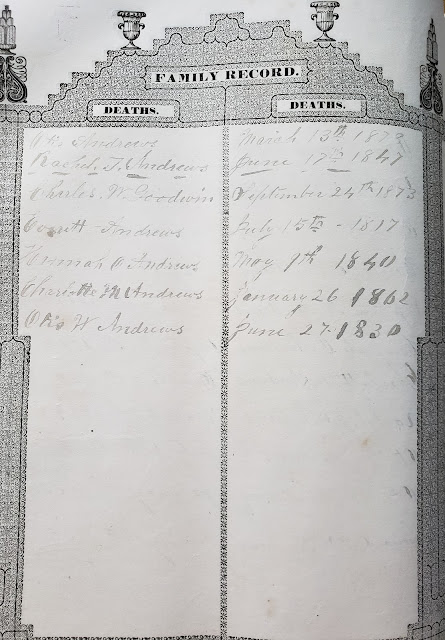 FAMILY RECORD.
DEATHS. DEATHS.
Otis Andrews March 13th 1873
Rachel T. Andrews June 17th 1847
Charles W. Goodwin September 24th 1873
Everett Andrews July 15th - 1817
Hannah O Andrews May 1th 1840
Charlotte M Andrews January 26 1862
Otis W Andrews June 27. 1830